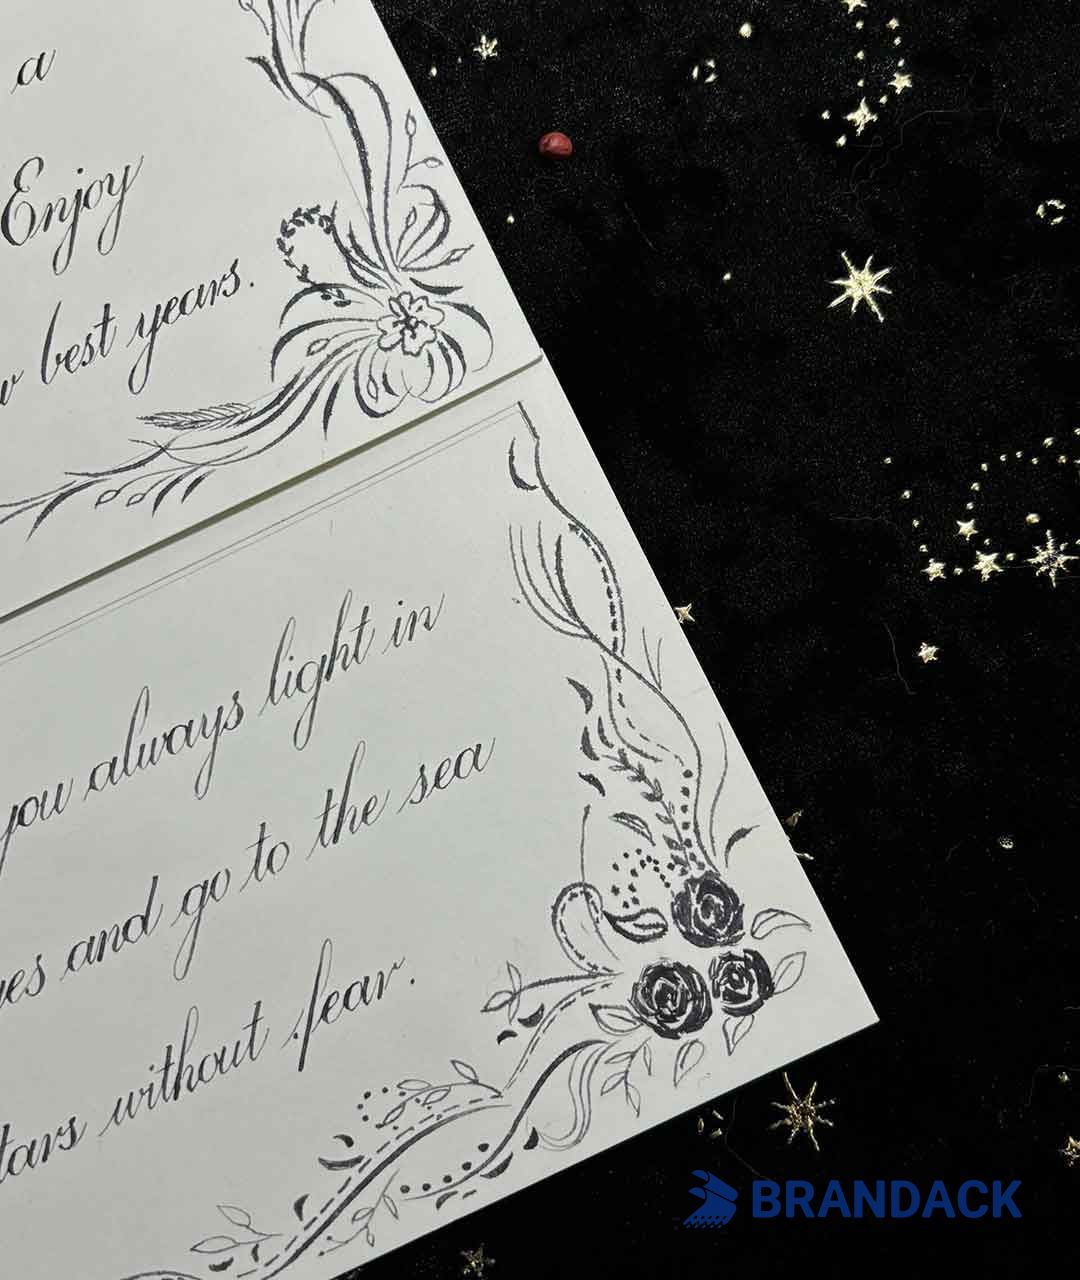 a
Enjoy
best years.
you always light in
and go to the sea
without fear.
BRANDACK